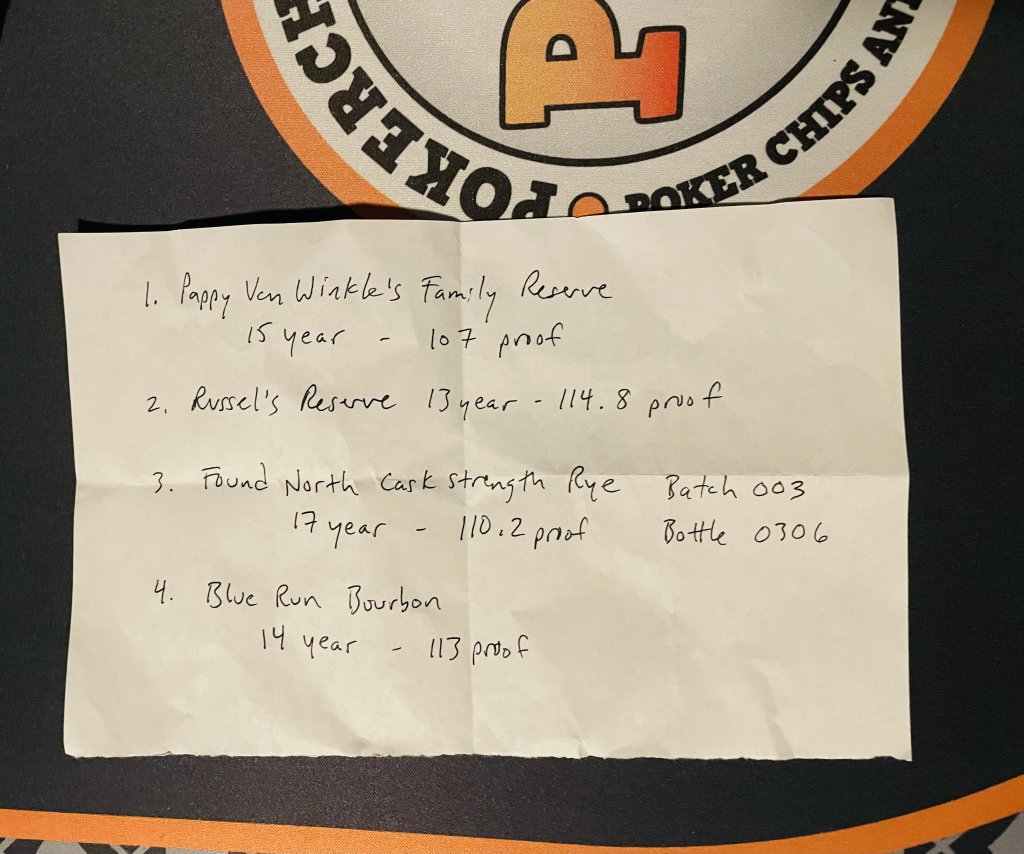 POKERCH
P
POKER CHIPS AN
1. Pappy Van Winkle's Family Reserve
15 year - 107 proof
2. Russel's Reserve 13 year - 114.8 proof
3. Found North Cask Strength Rye Batch 003
17 year - 110.2 proof Bottle 0306
4. Blue Run Bourbon
14 year - 113 proof